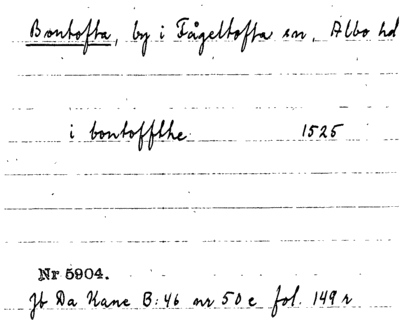 Bontofta, by i Fågeltofta sn, Albo hd
i bontoffthe 1525
Nr 5904.
Jb Da Kane B:46 nr 50 e fol. 149 r